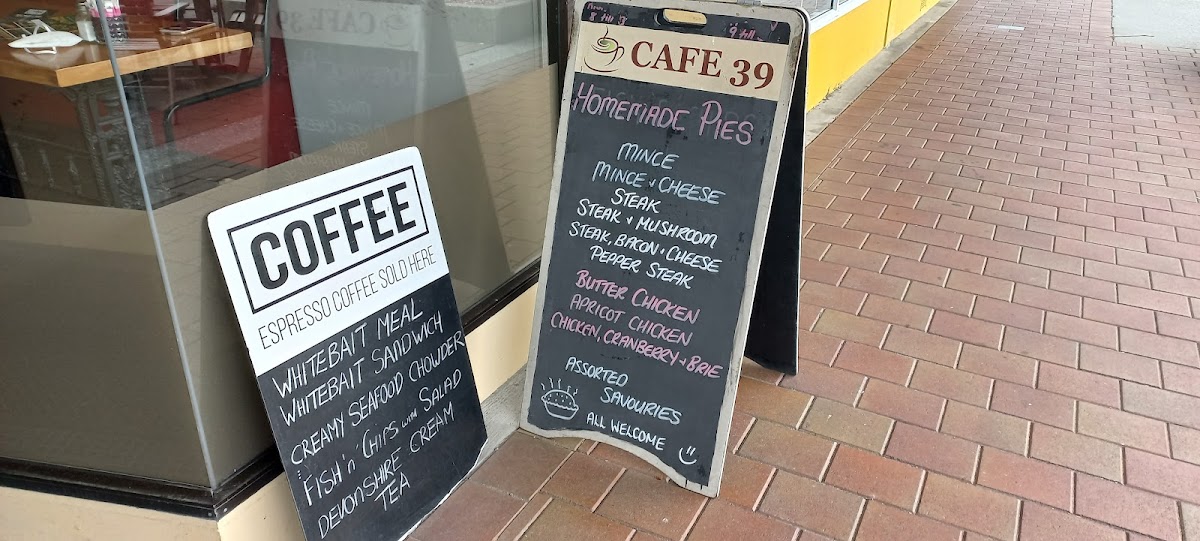 COFFEE
ESPRESSO COFFEE SOLD HERE
WHITEBAIT MEAL
WHITEBAIT SANDWICH
CREAMY SEAFOOD CHOWDER
FISH 'n' CHIPS with SALAD
DEVONSHIRE CREAM
TEA
8 till 3
9 till
CAFE 39
HOMEMADE PIES
MINCE
MINCE & CHEESE
STEAK
STEAK & MUSHROOM
STEAK, BACON & CHEESE
PEPPER STEAK
BUTTER CHICKEN
APRICOT CHICKEN
CHICKEN, CRANBERRY & BRIE
ASSORTED
SAVOURIES
ALL WELCOME
CAFE 39